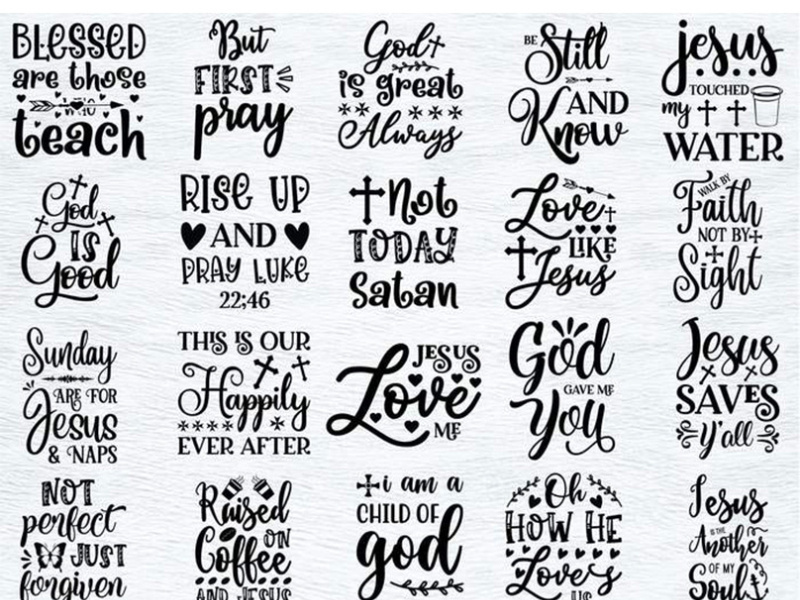 BLESSED
are those
who
teach
But
FIRST
pray
God
is great
Always
BE Still
AND
Know
jesus
TOUCHED
my
WATER
God
IS
Good
RISE UP
AND
PRAY LUKE
22;46
Not
TODAY
Satan
Love
LIKE
Jesus
WALK BY
Faith
NOT BY
Sight
Sunday
ARE FOR
Jesus
& NAPS
THIS IS OUR
Happily
EVER AFTER
JESUS
Love
ME
God
GAVE ME
You
Jesus
SAVES
Y'all
NOT
perfect
JUST
forgiven
Raised
ON
Coffee
AND JESUS
i am a
CHILD OF
god
Oh
HOW HE
Loves
US
Jesus
IS THE
Another
OF MY
Soul